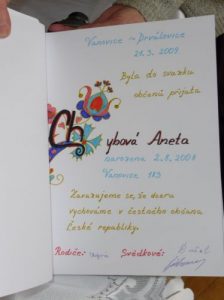 Vanovice - Drválovice
21.3.2009
Byla do svazku
občanů přijata
Chybová Aneta
narozena 2.8.2008
Vanovice 113
Zavazujeme se, že dceru
vychováme v čestného občana
České republiky.
Rodiče: Svědkové: